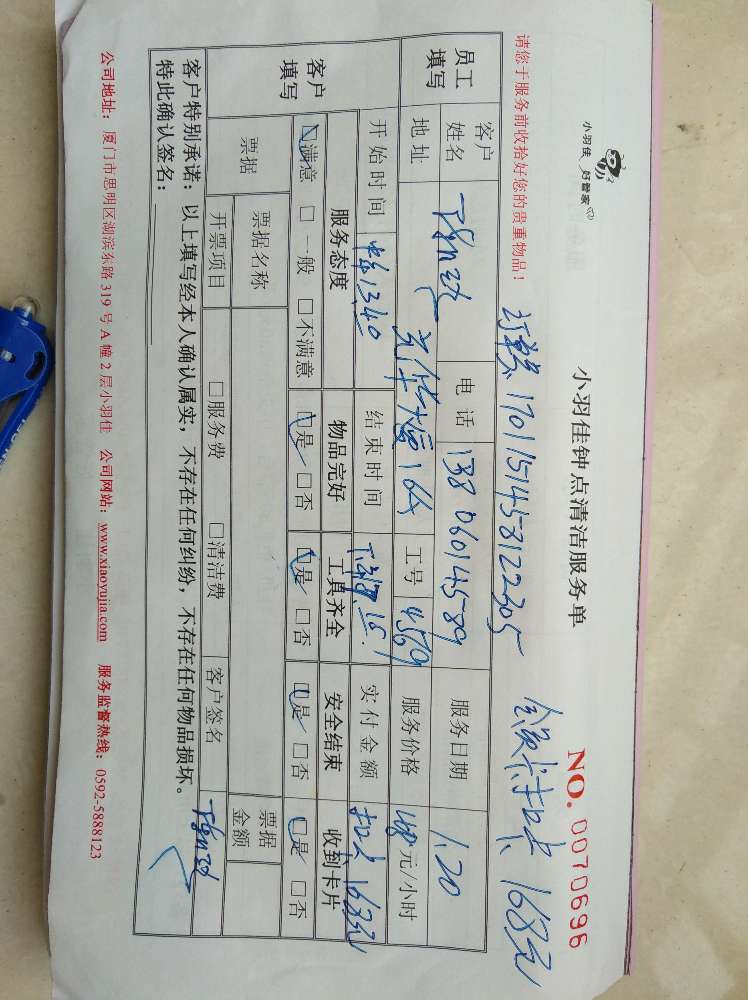 小羽佳 好管家
小羽佳钟点清洁服务单
NO. 0070696
请您于服务前收拾好您的贵重物品！
订单号 1701151458122305
会员卡扣卡 168元
员工填写
客户姓名
电话 13806014589
服务日期 1.20
地址 光华大厦16A
工号 4569
服务价格 48元/小时
开始时间 中午13:40
结束时间
实付金额 扣卡168元
客户填写
服务态度 物品完好 工具齐全 安全结束 收到卡片
☑满意 □一般 □不满意 ☑是 □否 ☑是 □否 ☑是 □否 ☑是 □否
票据
票据名称
票据金额
开票项目 □服务费 □清洁费 客户签名
客户特别承诺：以上填写经本人确认属实，不存在任何纠纷，不存在任何物品损坏。
特此确认签名：
公司地址：厦门市思明区湖滨东路 319 号 A 幢 2 层小羽佳 公司网站：www.xiaoyujia.com 服务监督热线：0592-5888123